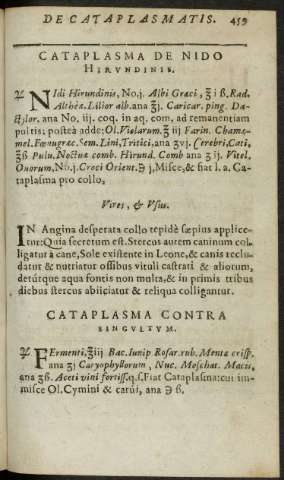 DE CATAPLASMATIS. 459
CATAPLASMA DE NIDO
HIRVNDINIS.
℞ NIdi Hirundinis, No.j. Albi Græci, ℥ i ß. Rad.
Altheæ. Lilior alb. ana ℥j. Caricar. ping. Da-
ctylor. ana No. iij. coq. in aq. com, ad remanentiam
pultis: posteà adde: Ol. Violarum. ℥ iij Farin. Chamæ-
mel. Fœnugræc. Sem. Lini, Tritici, ana ʒvj. Cerebri, Cati,
℥ß Pulu. Noctuæ comb. Hirund. Comb ana ʒ ij. Vitel,
Ouorum, No.j. Croci Orient. ℈ j, Misce, & fiat l. a. Ca-
taplasma pro collo,
Vires, & Vsus.
IN Angina desperata collo tepidè sæpius applice-
tur: Quia secretum est. Stercus autem caninum col-
ligatur à cane, Sole existente in Leone, & canis reclu-
datur & nutriatur ossibus vituli castrati & aliorum,
deturque aqua fontis non multa, & in primis tribus
diebus stercus abiiciatur & reliqua colligantur.
CATAPLASMA CONTRA
SINGVLTVM.
℞ FErmenti. ℥iij Bac. Iunip Rosar. rub. Mentæ crisp.
ana ʒj Caryophyllorum, Nuc. Moschat. Macis,
ana ʒß. Aceti vini fortiss. q. s. Fiat Cataplasma: cui im-
misce Ol. Cymini & carui, ana ℈ ß.